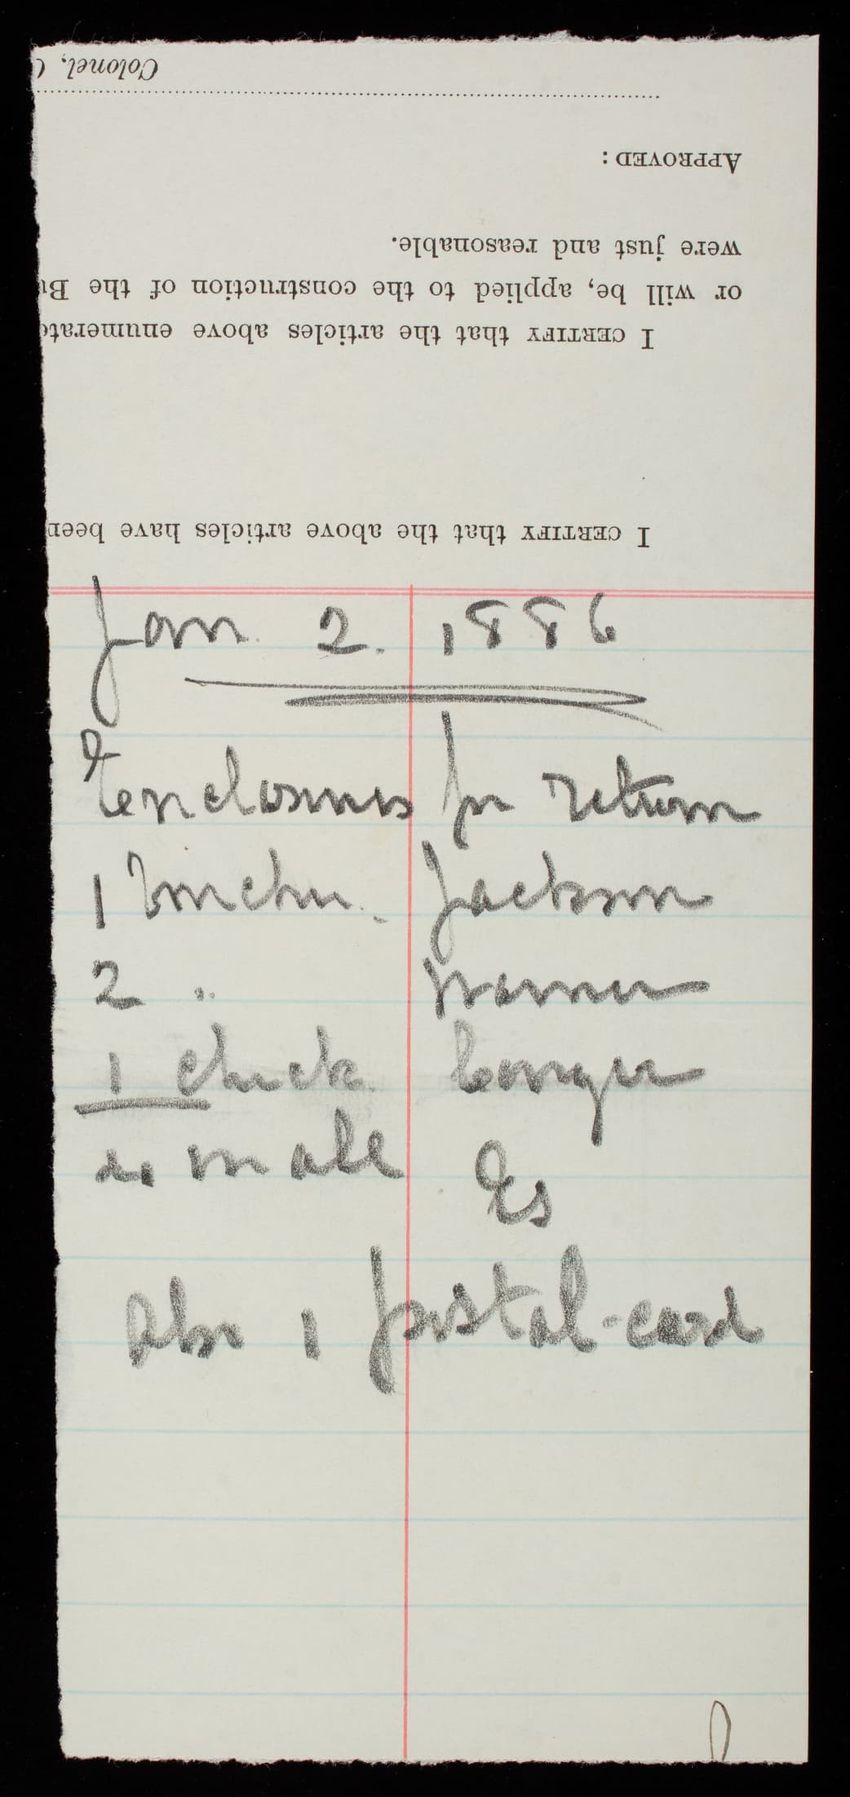 Colonel, C
APPROVED:
were just and reasonable.
or will be, applied to the construction of the Bu
I CERTIFY that the articles above enumerate
I CERTIFY that the above articles have been
Jan. 2. 1886
enclosures for return
1 Jackson
2 "
1 check.
in all
also 1 postal-card